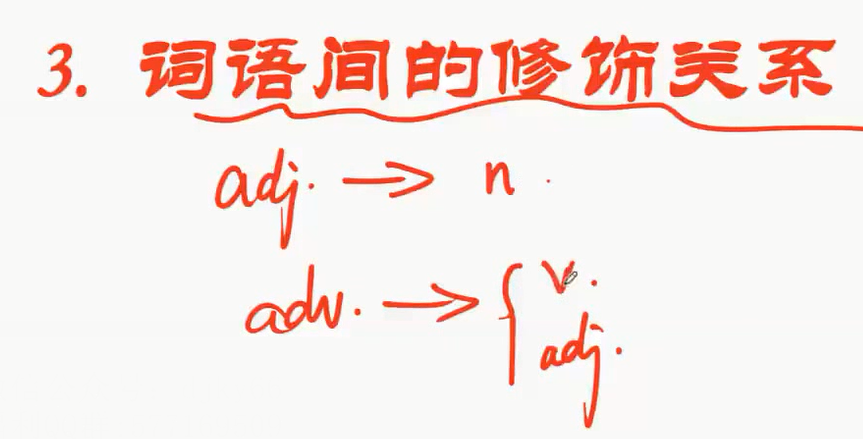 3. 词语间的修饰关系
adj. → n.
adv. → { v.
adj.